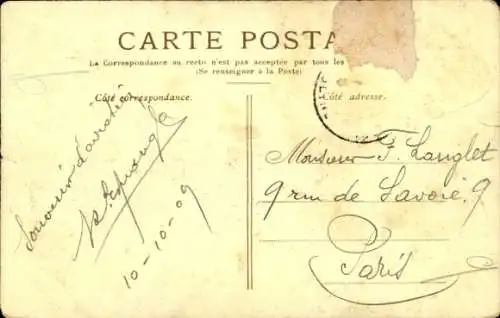 CARTE POSTA
La Correspondance au recto n'est pas acceptée par tous les
(Se renseigner à la Poste)
Côté correspondance.
Côté adresse.
Souvenir d'aviation
10-10-09
Monsieur F. Langlet
9 rue de Savoie, 9
Paris